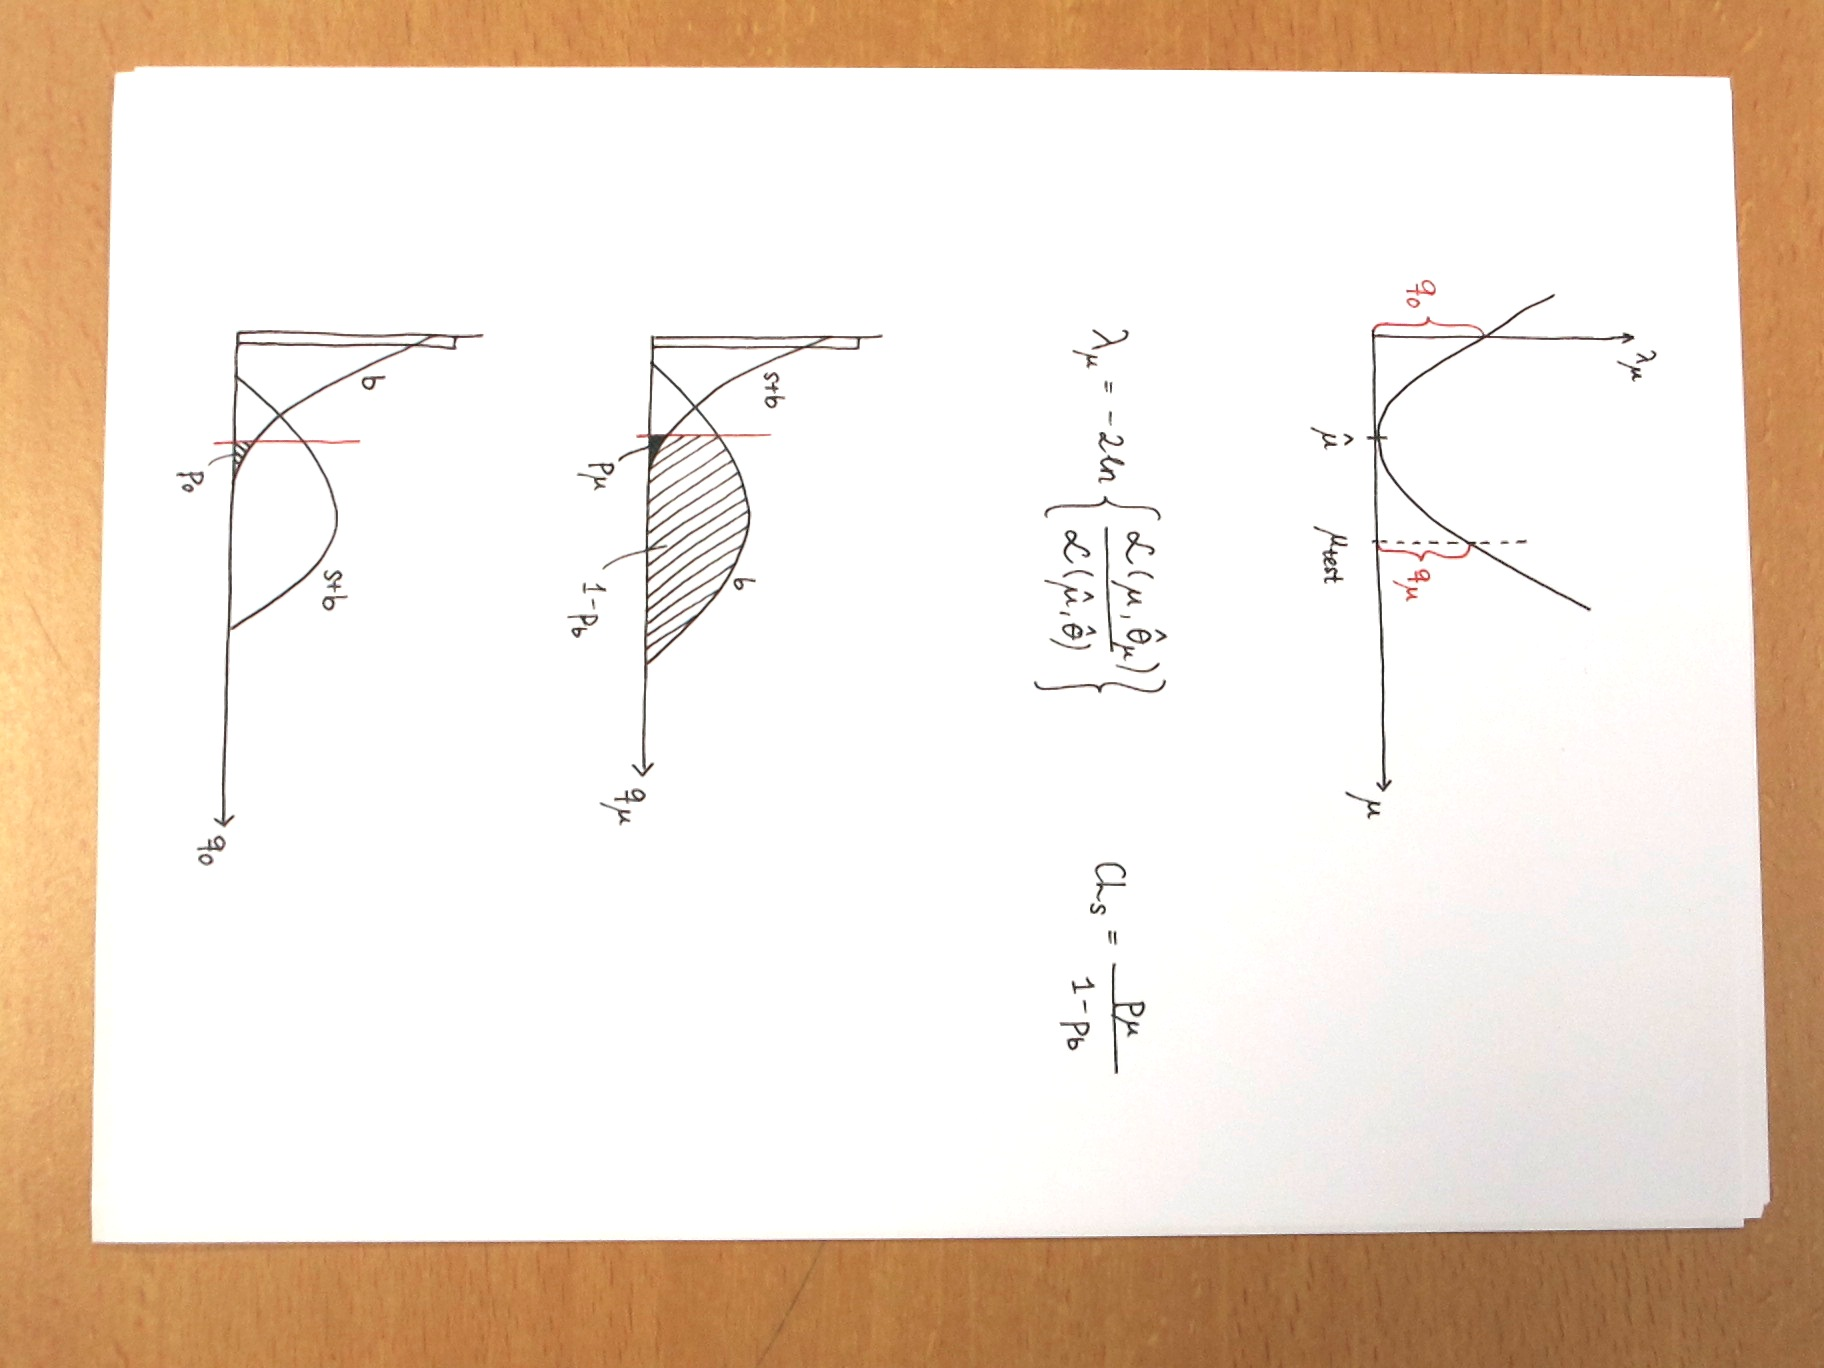 λμ
q0
μ̂
μtest
qμ
μ
λμ = -2ln { ℒ(μ, θ̂μ) / ℒ(μ̂, θ̂) }
CLs = pμ / 1-pb
s+b
pμ
b
1-pb
qμ
b
p0
s+b
q0